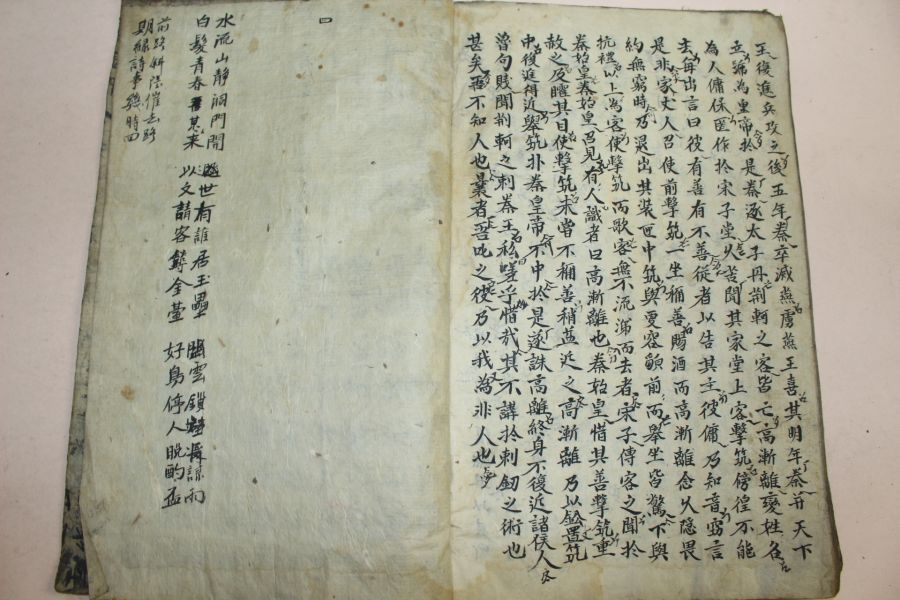 王後進兵攻之後五年秦卒滅燕虜燕王喜其明年秦并天下
立號為皇帝於是秦逐太子丹荊軻之客皆亡高漸離變姓名
為人傭保匿作於宋子堂久苦聞其家堂上客擊筑傍徨不能
去每出言曰彼有善有不善從者以告其主彼傭乃知音竊言
是非家丈人召使前擊筑一坐稱善賜酒而高漸離念久隱畏
約無窮時乃退出其装匣中筑與更容貌前而舉坐皆驚下與
抗禮以上為客使擊筑而歌客無不流涕而去者宋子傳客之聞於
秦始皇秦始皇召見有人識者曰高漸離也秦始皇惜其善擊筑重
赦之乃矐其目使擊筑未嘗不稱善稍益近之高漸離乃以鈆置筑
中後進得近舉筑扑秦皇帝不中於是遂誅高離終身不復近諸侯人
魯句賤聞荊軻之刺秦王私嗟乎惜哉其不講於刺釖之術也
甚矣吾不知人也曩者吾叱之彼乃以我為非人也
四
水流山靜洞門開 世有誰居玉壘 幽雲鎖長諒雨
白髮青春來 以文請客金臺 好鳥停人脫酌盃
前路斜陰催去路
期緣詩事時回